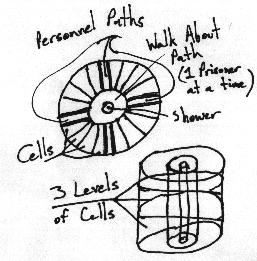 Personnel Paths
Walk About
Path
(1 Prisoner
at a time)
Shower
Cells
3 Levels
of Cells